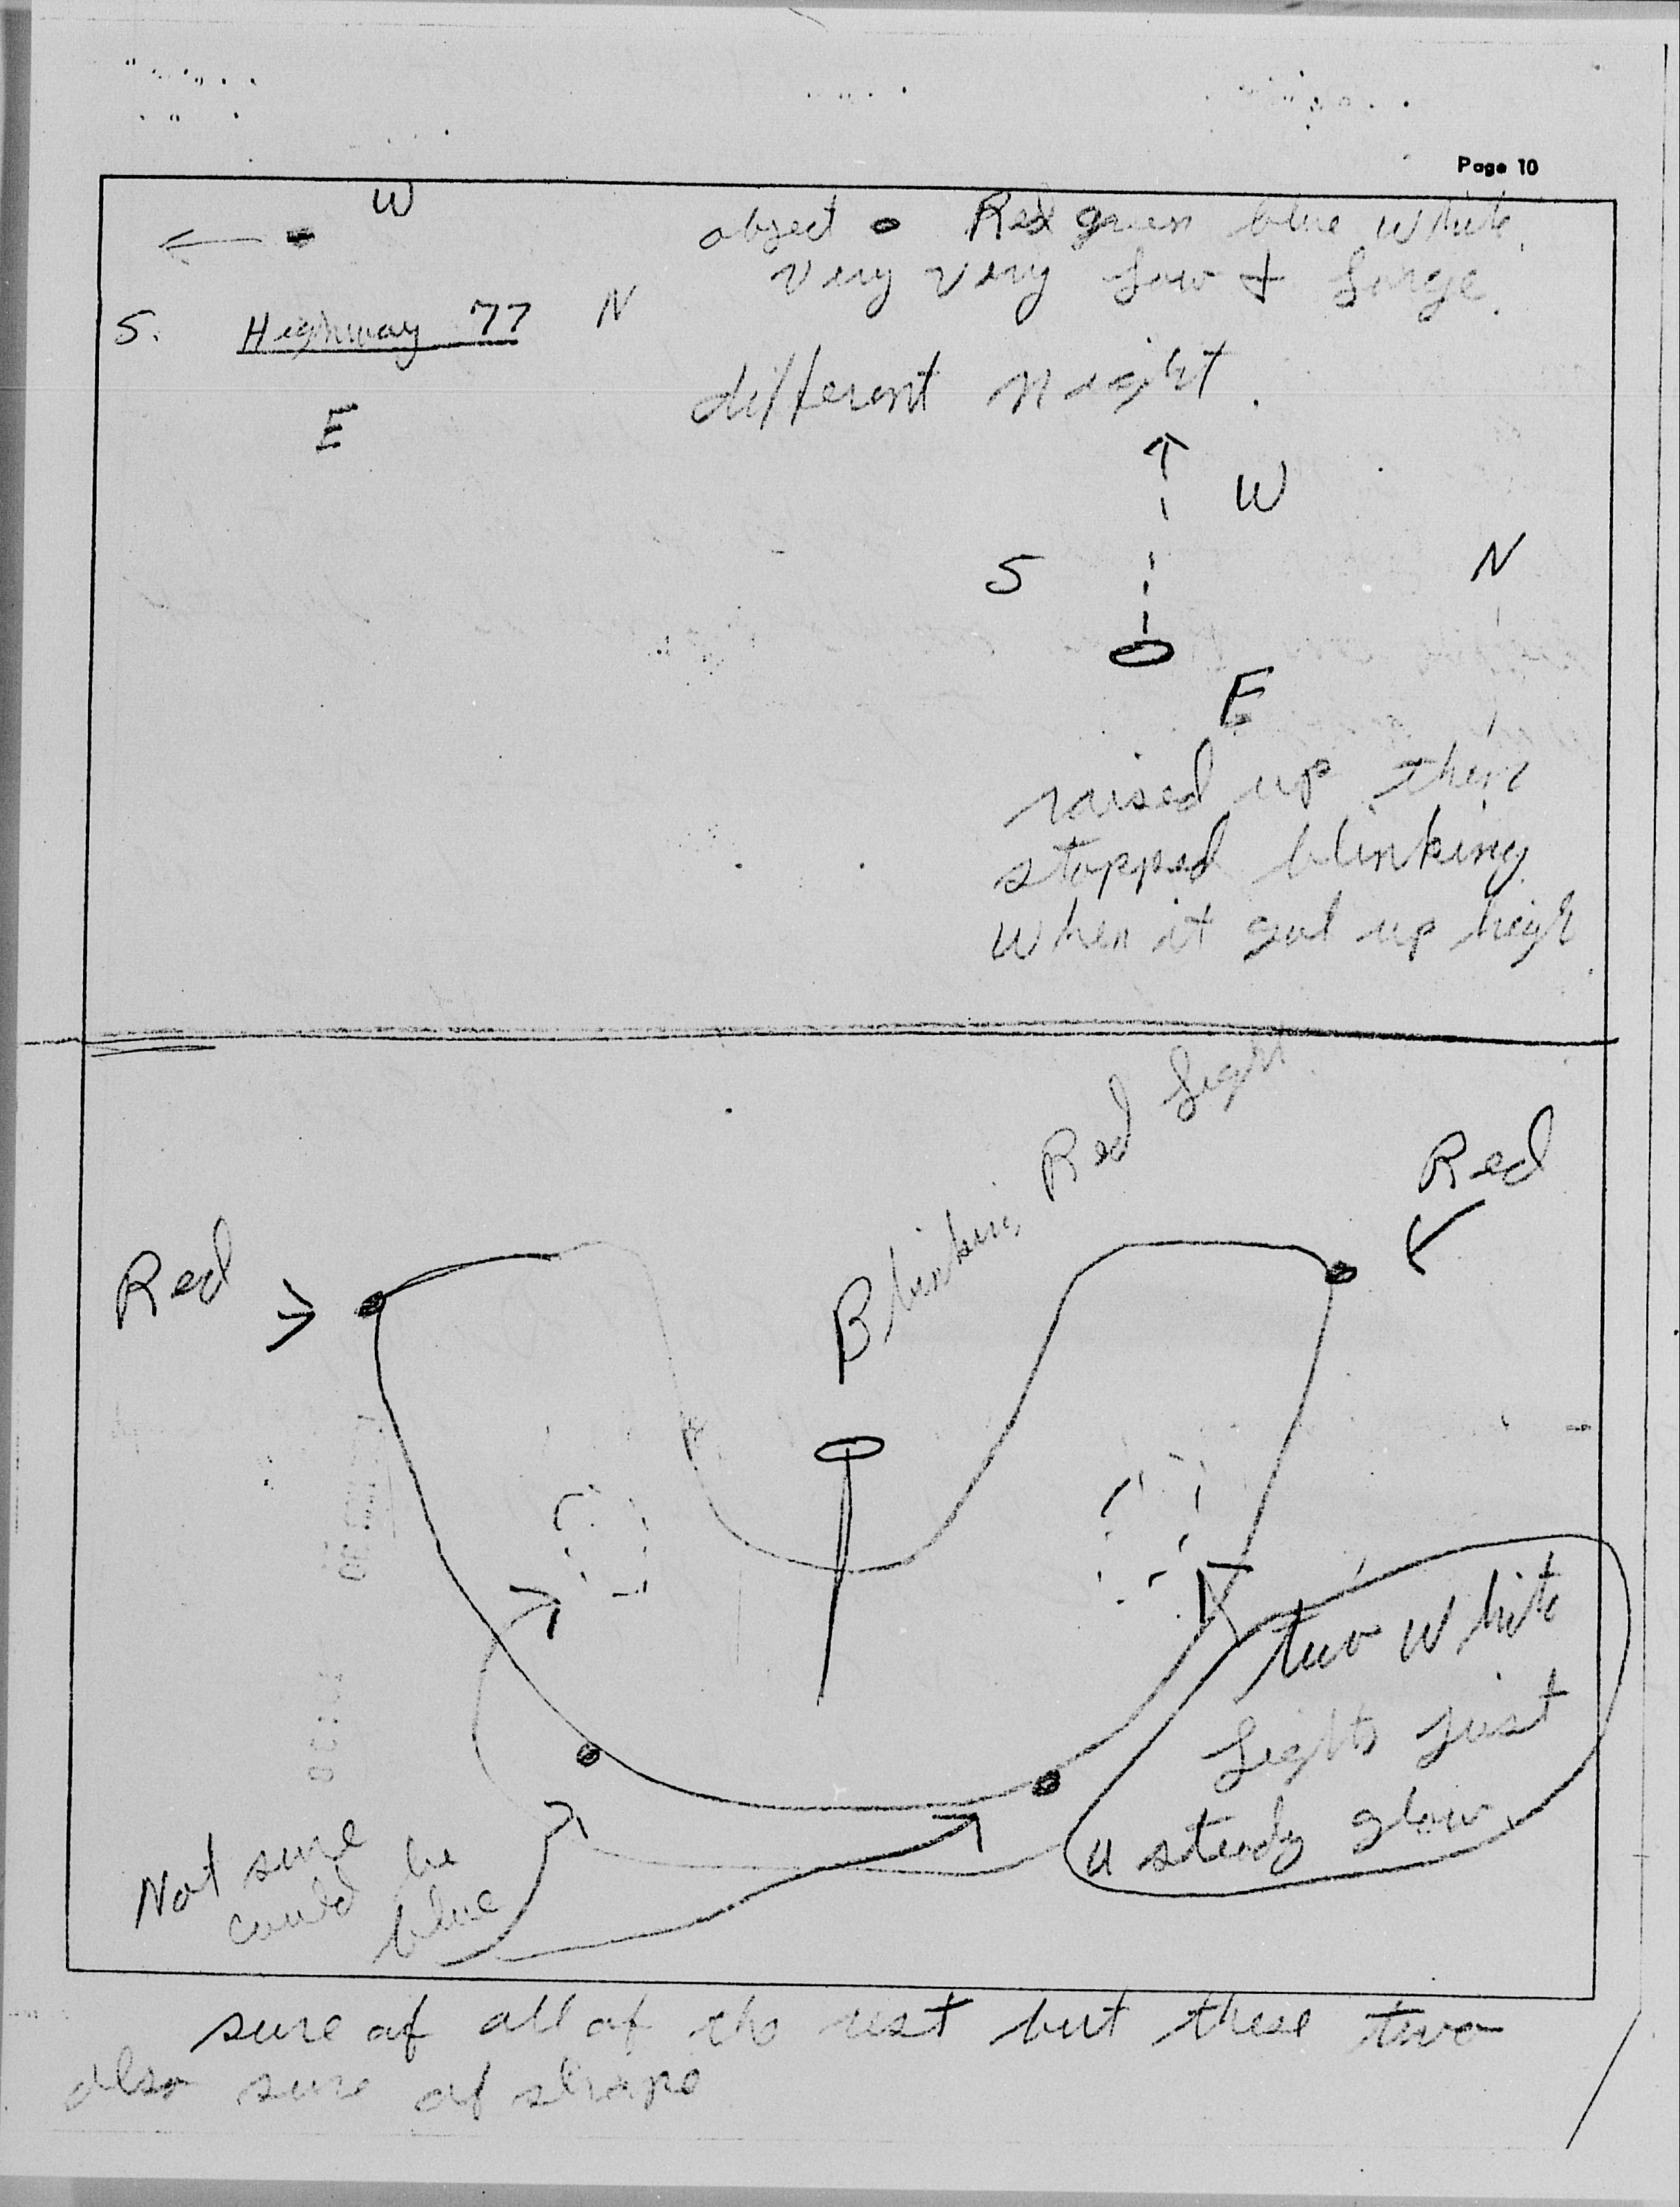 Page 10
W
object Red green blue white.
very very low & large.
S. Highway 77 N
different night.
E
W
S N
E
raised up then
stopped blinking
when it got up high.
Blinking Red Light
Red
Red
two white
lights just
a steady glow
Not sure
could be
blue
sure of all of the rest but these two
also sure of shape